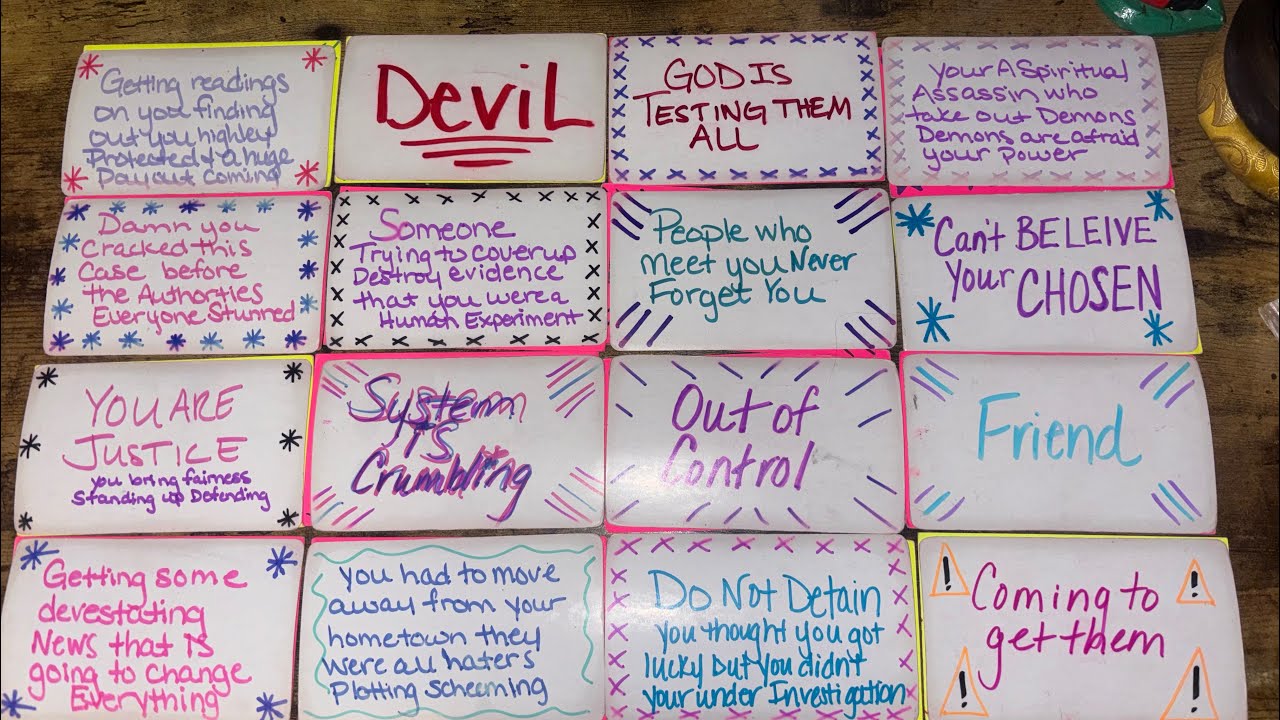 Getting readings
on you finding
out you highley
Protected & a huge
Payout coming
DeviL
GOD IS
TESTING THEM
ALL
your A Spiritual
Assassin who
take out Demons
Demons are afraid
your Power
Damn you
Cracked this
Case before
the Authorties
Everyone Stunned
Someone
Trying to cover up
Destroy evidence
that you were a
Human Experiment
People who
meet you Never
Forget You
Can't BELEIVE
Your CHOSEN
YOU ARE
JUSTICE
you bring fairness
Standing up Defending
System
IS
Crumbling
Out of
Control
Friend
Getting some
devestating
News that IS
going to change
Everything
you had to move
away from your
hometown they
were all haters
Plotting Scheming
Do Not Detain
you thought you got
lucky but you didn't
your under Investigation
Coming to
get them
! ! ! !